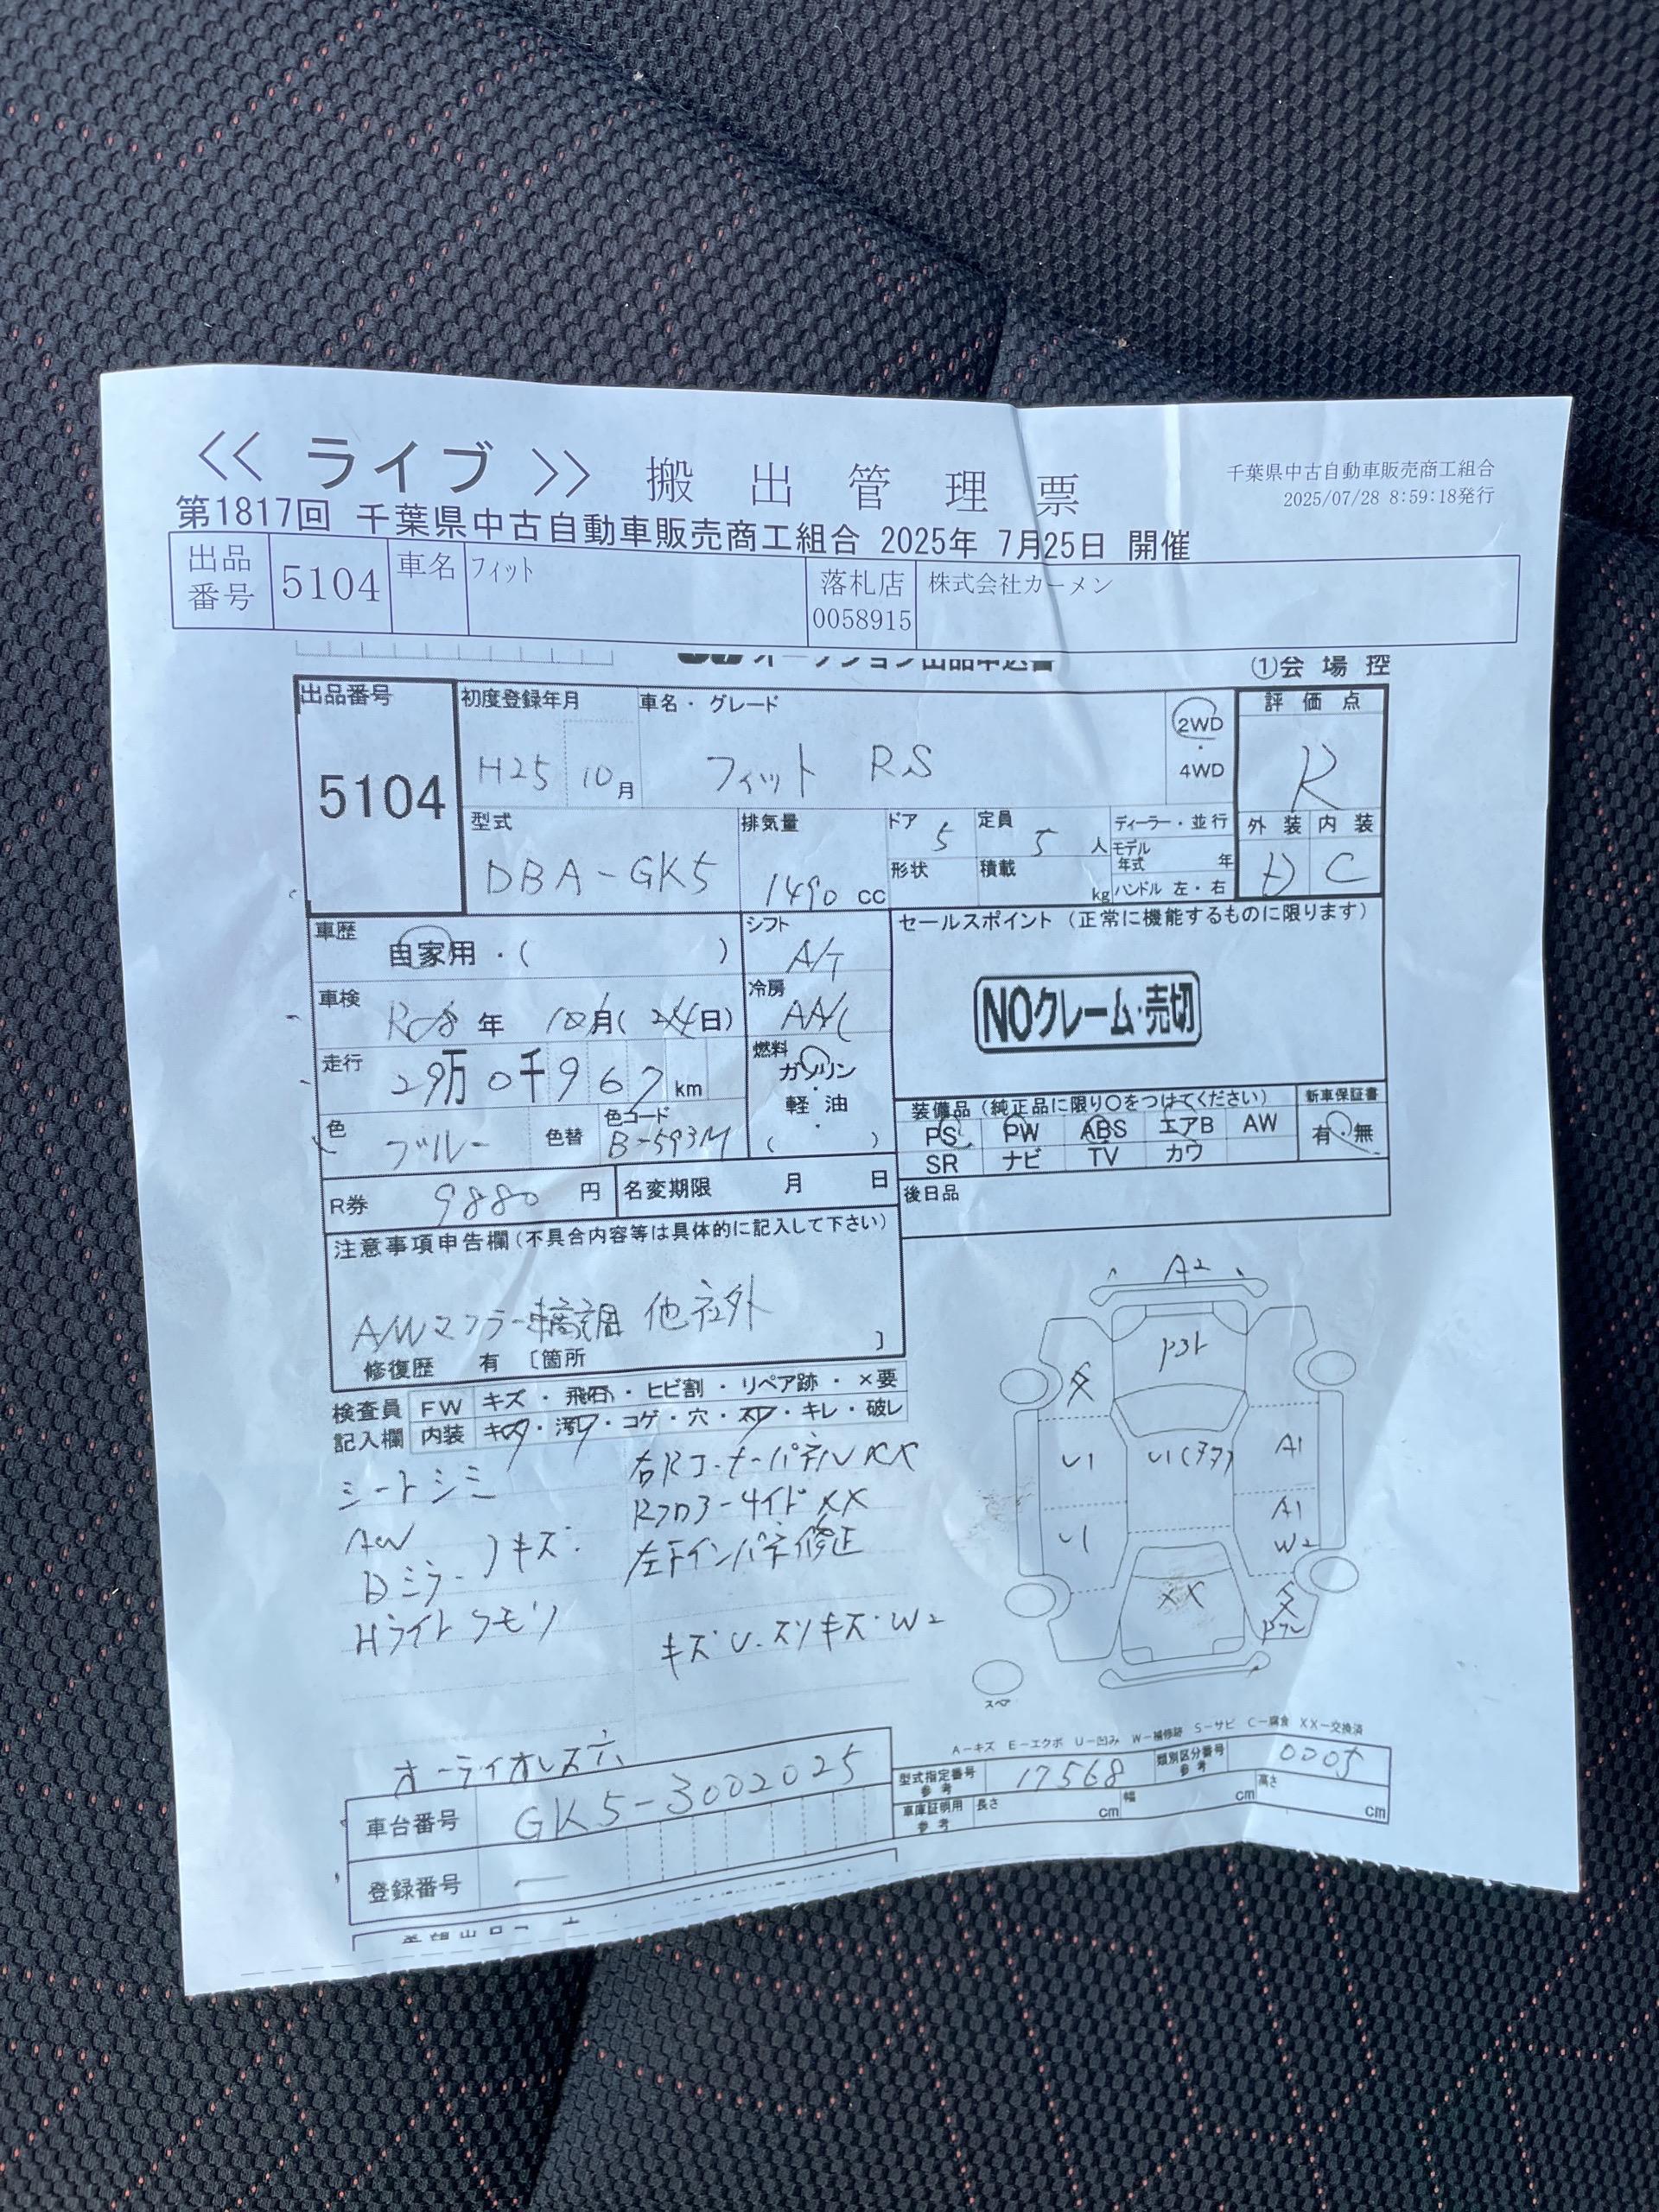 << ライブ >> 搬出管理票
千葉県中古自動車販売商工組合
2025/07/28 8:59:18発行
第1817回 千葉県中古自動車販売商工組合 2025年 7月25日 開催
出品番号 5104 車名 フィット 落札店 0058915 株式会社カーメン
オークション出品申込書 ①会場控
出品番号 初度登録年月 車名・グレード 2WD・4WD 評価点
5104 H25 10月 フィット RS R
型式 排気量 ドア 定員 ディーラー・並行 外装 内装
DBA-GK5 1490 cc 5 5人 モデル年式 年 D C
形状 積載 kg ハンドル 左・右
車歴 自家用・( ) シフト A/T セールスポイント (正常に機能するものに限ります)
車検 年 月( 日) 冷房 AAC
NOクレーム・売切
走行 29万0千967km 燃料 ガソリン・軽油・( )
色 ブルー 色替 色コード B-593M
装備品 (純正品に限り○をつけてください) 新車保証書
PS PW ABS エアB AW 有・無
SR ナビ TV カワ
R券 9880円 名変期限 月 日 後日品
注意事項申告欄 (不具合内容等は具体的に記入して下さい)
A/W マフラー 車高調 他社外
修復歴 有 〔箇所 〕
検査員記入欄 FW キズ・飛石・ヒビ割・リペア跡・×要
内装 キズ・汚レ・コゲ・穴・スレ・キレ・破レ
シートシミ
AW
Dミラー キズ
Hライトクモリ
右Rコーナーパネル XX
Rフロアーサイド XX
左Fインパネ修正
キズ U・スリキズ・W2
オーディオレス穴
A2
U1
U1
A1
A1
W2
XX
スペア
A-キズ E-エクボ U-凹み W-補修跡 S-サビ C-腐食 XX-交換済
車台番号 GK5-3002025
型式指定番号 参考 17568 類別区分番号 参考 0005
車庫証明用 参考 長さ cm 幅 cm 高さ cm
登録番号 ー